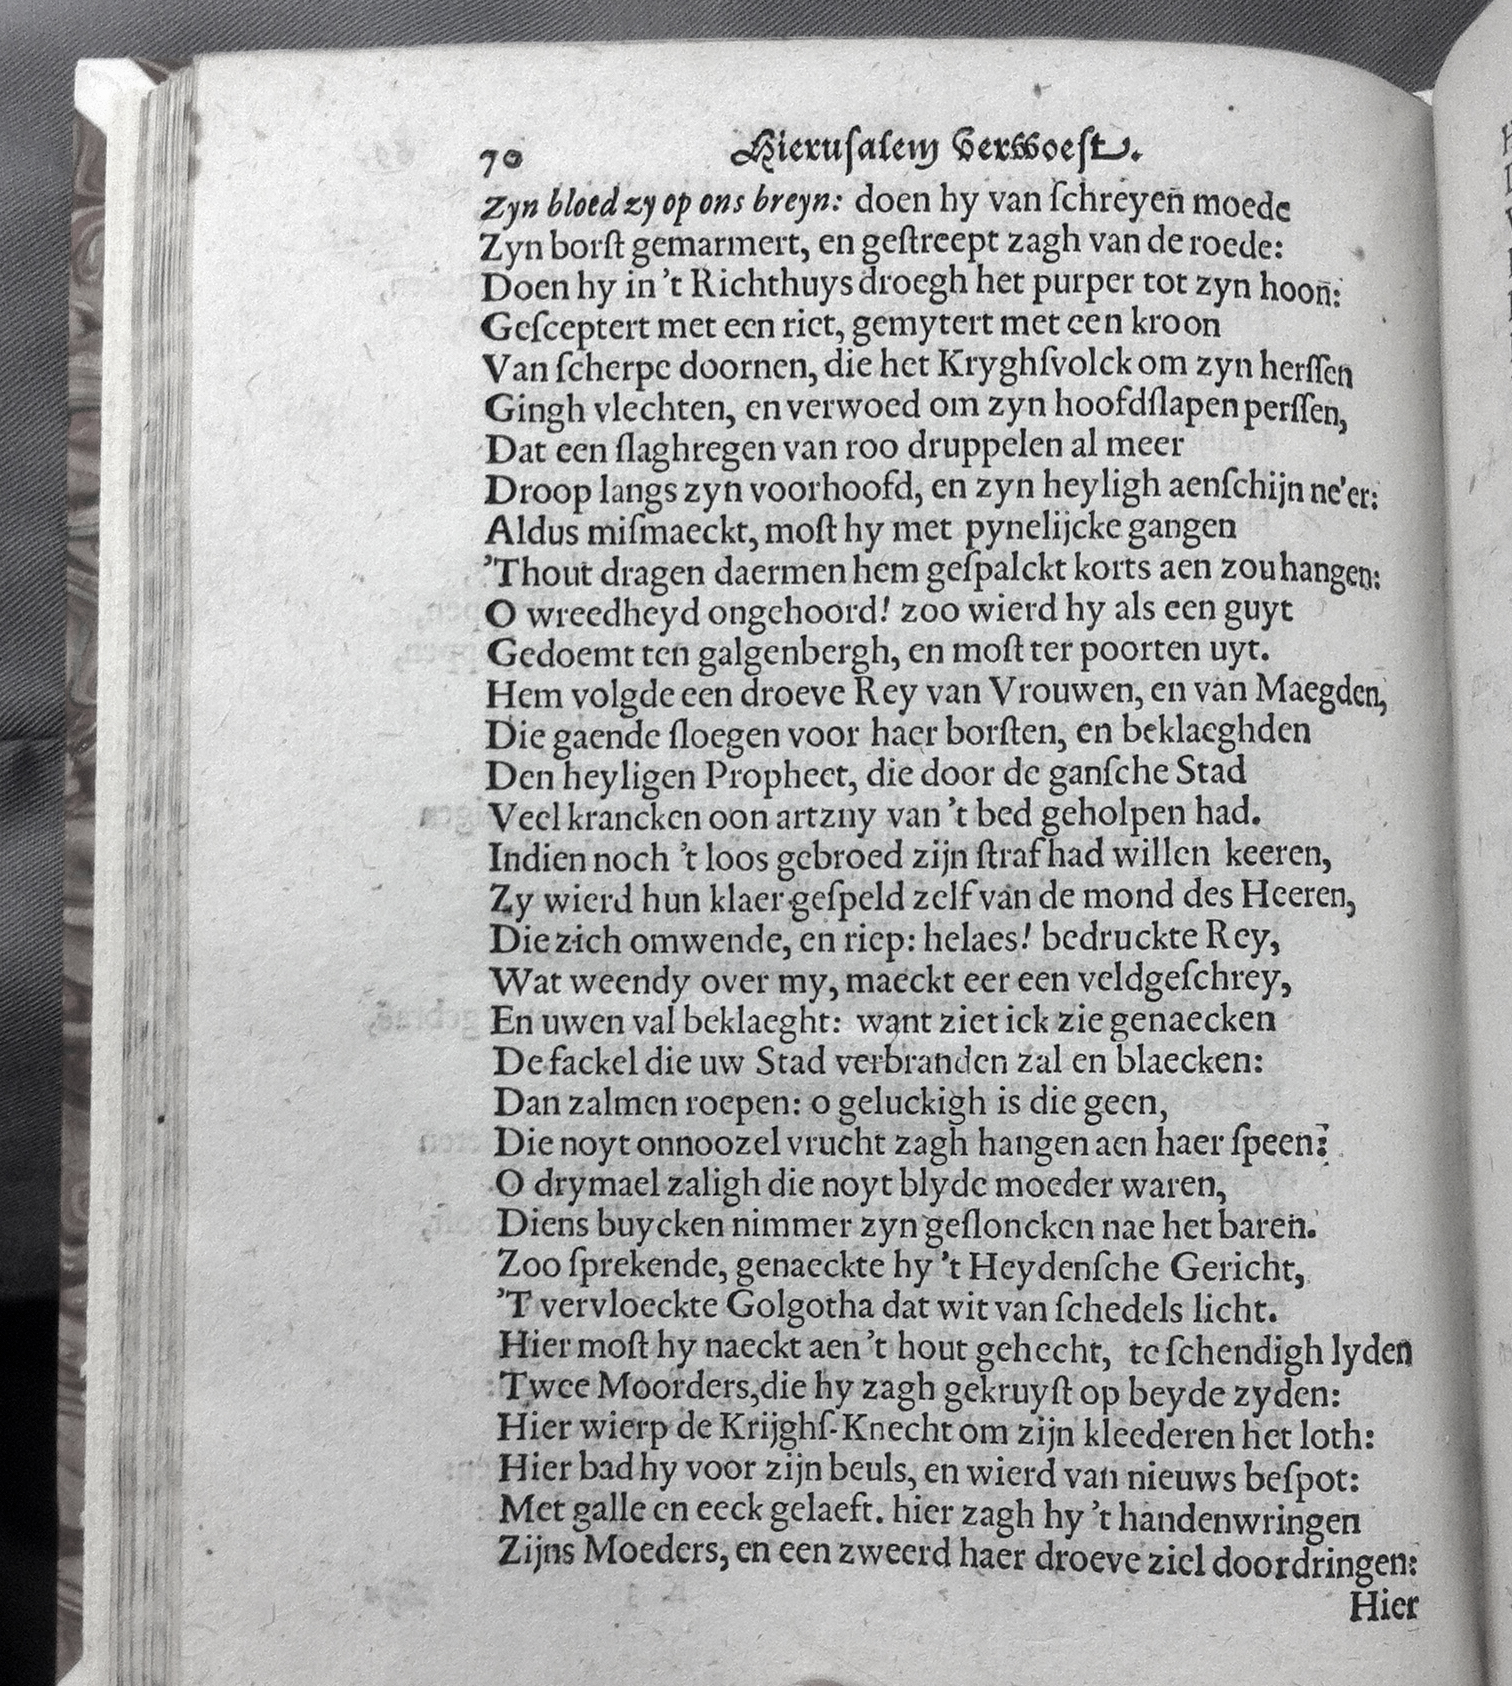 70 Hieruſalem Verwoeſt.
Zyn bloed zy op ons breyn: doen hy van ſchreyen moede
Zyn borſt gemarmert, en geſtreept zagh van de roede:
Doen hy in 't Richthuys droegh het purper tot zyn hoon:
Geſceptert met een riet, gemytert met een kroon
Van ſcherpe doornen, die het Kryghſvolck om zyn herſſen
Gingh vlechten, en verwoed om zyn hoofdſlapen perſſen,
Dat een ſlaghregen van roo druppelen al meer
Droop langs zyn voorhoofd, en zyn heyligh aenſchijn ne'er:
Aldus miſmaeckt, moſt hy met pynelijcke gangen
'Thout dragen daermen hem geſpalckt korts aen zou hangen:
O wreedheyd ongehoord! zoo wierd hy als een guyt
Gedoemt ten galgenbergh, en moſt ter poorten uyt.
Hem volgde een droeve Rey van Vrouwen, en van Maegden,
Die gaende ſloegen voor haer borſten, en beklaeghden
Den heyligen Propheet, die door de ganſche Stad
Veel krancken oon artzny van 't bed geholpen had.
Indien noch 't loos gebroed zijn ſtraf had willen keeren,
Zy wierd hun klaer geſpeld zelf van de mond des Heeren,
Die zich omwende, en riep: helaes! bedruckte Rey,
Wat weendy over my, maeckt eer een veldgeſchrey,
En uwen val beklaeght: want ziet ick zie genaecken
De fackel die uw Stad verbranden zal en blaecken:
Dan zalmen roepen: o geluckigh is die geen,
Die noyt onnoozel vrucht zagh hangen aen haer ſpeen:
O drymael zaligh die noyt blyde moeder waren,
Diens buycken nimmer zyn geſloncken nae het baren.
Zoo ſprekende, genaeckte hy 't Heydenſche Gericht,
'T vervloeckte Golgotha dat wit van ſchedels licht.
Hier moſt hy naeckt aen 't hout gehecht, te ſchendigh lyden
Twee Moorders, die hy zagh gekruyſt op beyde zyden:
Hier wierp de Krijghſ-Knecht om zijn kleederen het loth:
Hier bad hy voor zijn beuls, en wierd van nieuws beſpot:
Met galle en eeck gelaeft. hier zagh hy 't handenwringen
Zijns Moeders, en een zweerd haer droeve ziel doordringen:
Hier